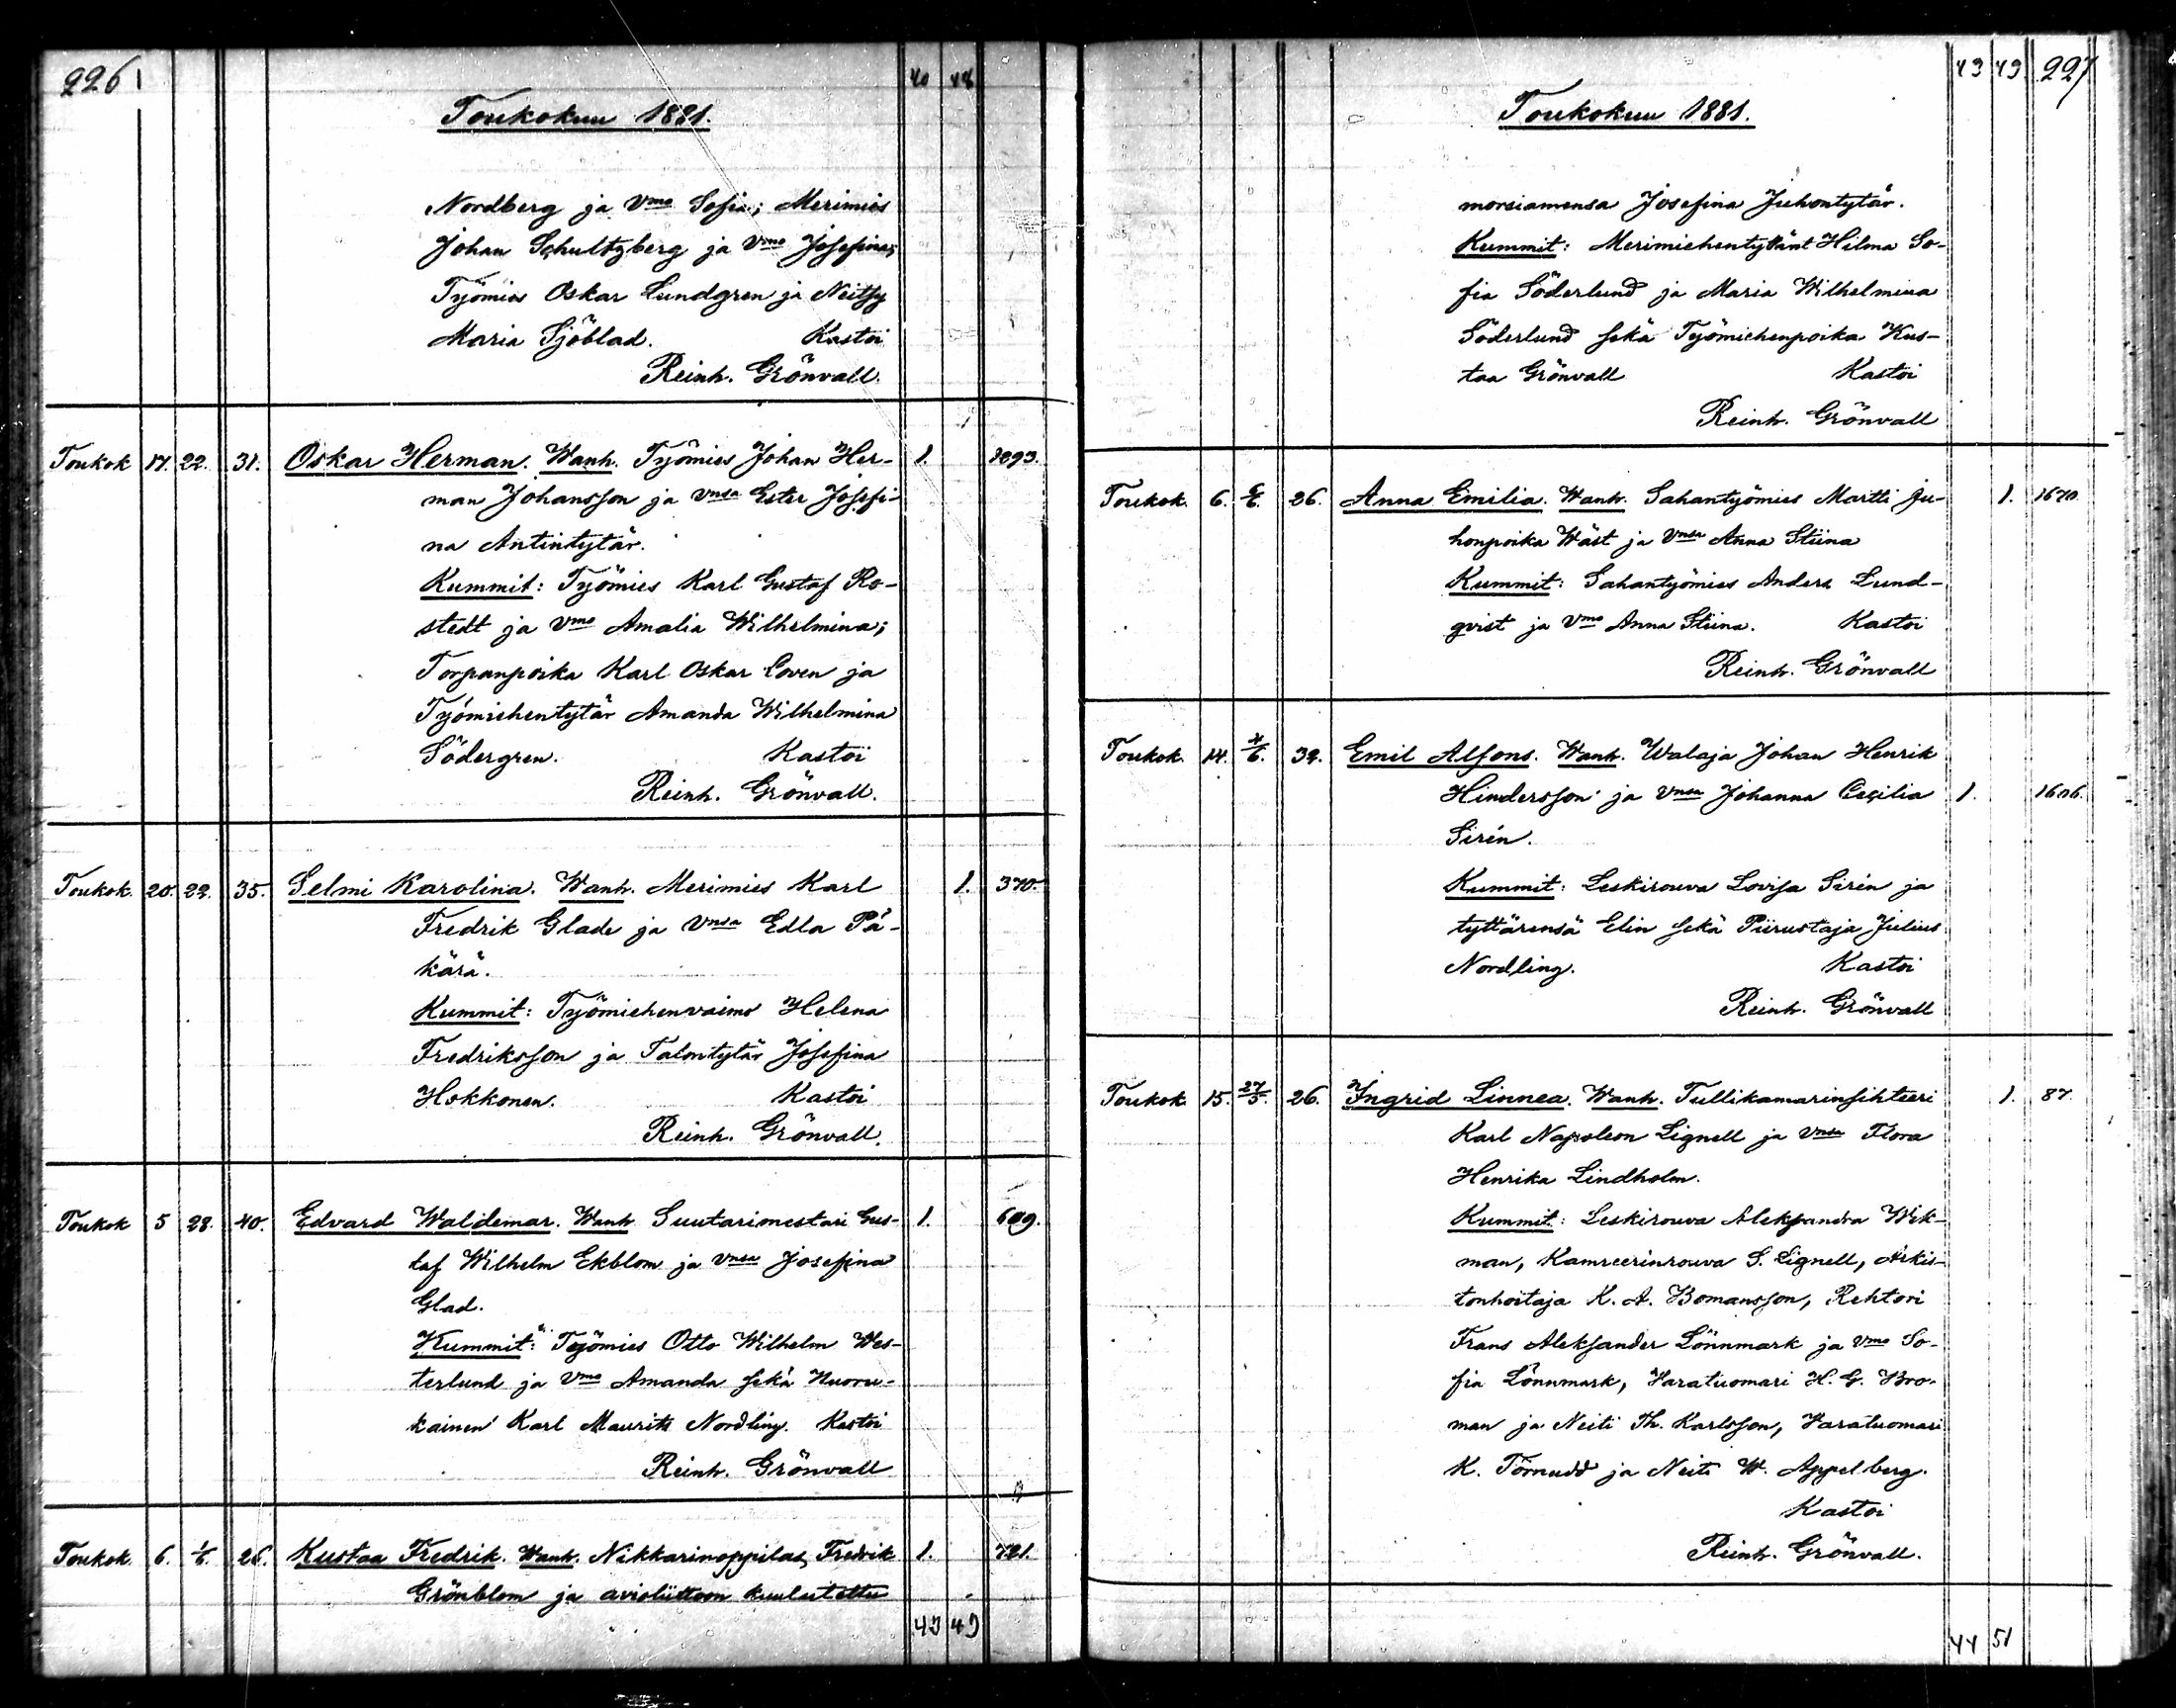 226 40 48
Toukokuu 1881.
Nordberg ja Vmo Sofia; Merimies
Johan Schultzberg ja Vmo Josefina;
Työmies Oskar Lundgren ja Neitsy
Maria Sjöblad. Kastoi
Reinh. Grönvall.
Toukok 17. 22. 31. Oskar Herman. Wanh. Työmies Johan Her- 1. 1093.
man Johansson ja Vnsa Ester Josefi-
na Antintytär.
Kummit: Työmies Karl Gustaf Ro-
stedt ja Vmo Amalia Wilhelmina;
Torpanpoika Karl Oskar Loven ja
Työmiehentytär Amanda Wilhelmina
Södergren. Kastoi
Reinh. Grönvall.
Toukok. 20. 22. 35. Selmi Karolina. Wanh. Merimies Karl 1. 370.
Fredrik Glade ja Vnsa Edla Pä-
kärä.
Kummit: Työmiehenvaimo Helena
Fredriksson ja Talontytär Josefina
Hokkonen. Kastoi
Reinh. Grönvall.
Toukok 5 28. 40. Edvard Waldemar. Wanh. Suutarimestari Gus- 1. 609.
taf Wilhelm Ekblom ja Vnsa Josefina
Glad.
Kummit: Työmies Otto Wilhelm Wes-
terlund ja Vmo Amanda sekä Nuoru-
kainen Karl Maurits Nordling. Kastoi
Reinh. Grönvall
Toukok. 6. 1/6. 26. Kustaa Fredrik. Wanh. Nikkarinoppilas Fredrik 1. 721.
Grönblom ja avioliittoon kuulutettu
43 49
43 49 227
Toukokuu 1881.
morsiamensa Josefina Juhontytär.
Kummit: Merimiehentytäret Hilma So-
fia Söderlund ja Maria Wilhelmina
Söderlund sekä Työmiehenpoika Kus-
taa Grönvall Kastoi
Reinh. Grönvall
Toukok. 6. 6/6. 26. Anna Emilia. Wanh. Sahantyömies Martti Ju- 1. 1670.
honpoika Wäst ja Vnsa Anna Stiina
Kummit: Sahantyömies Anders Lund-
qvist ja Vmo Anna Stiina. Kastoi
Reinh. Grönvall
Toukok. 14. 4/6. 32. Emil Alfons. Wanh. Walaja Johan Henrik
Hindersson ja Vnsa Johanna Cecilia 1. 1606.
Sirén.
Kummit: Leskirouva Lovisa Sirén ja
tyttärensä Elin sekä Piirustaja Julius
Nordling. Kastoi
Reinh. Grönvall
Toukok. 15. 27/5. 26. Ingrid Linnea. Wanh. Tullikamarinsihteeri 1. 87.
Karl Napoleon Lignell ja Vnsa Flora
Henrika Lindholm.
Kummit: Leskirouva Aleksandra Wik-
man, Kamreerinrouva S. Lignell, Arkis-
tonhoitaja K. A. Bomansson, Rehtori
Frans Aleksander Lönnmark ja Vmo So-
fia Lönnmark, Varatuomari H. G. Bro-
man ja Neiti Th. Karlsson, Varatuomari
K. Törnudd ja Neiti W. Appelberg.
Kastoi
Reinh. Grönvall.
44 51